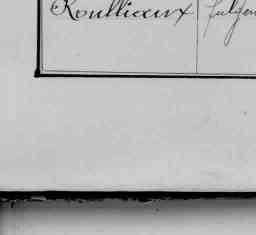 Roullieaux fulgen